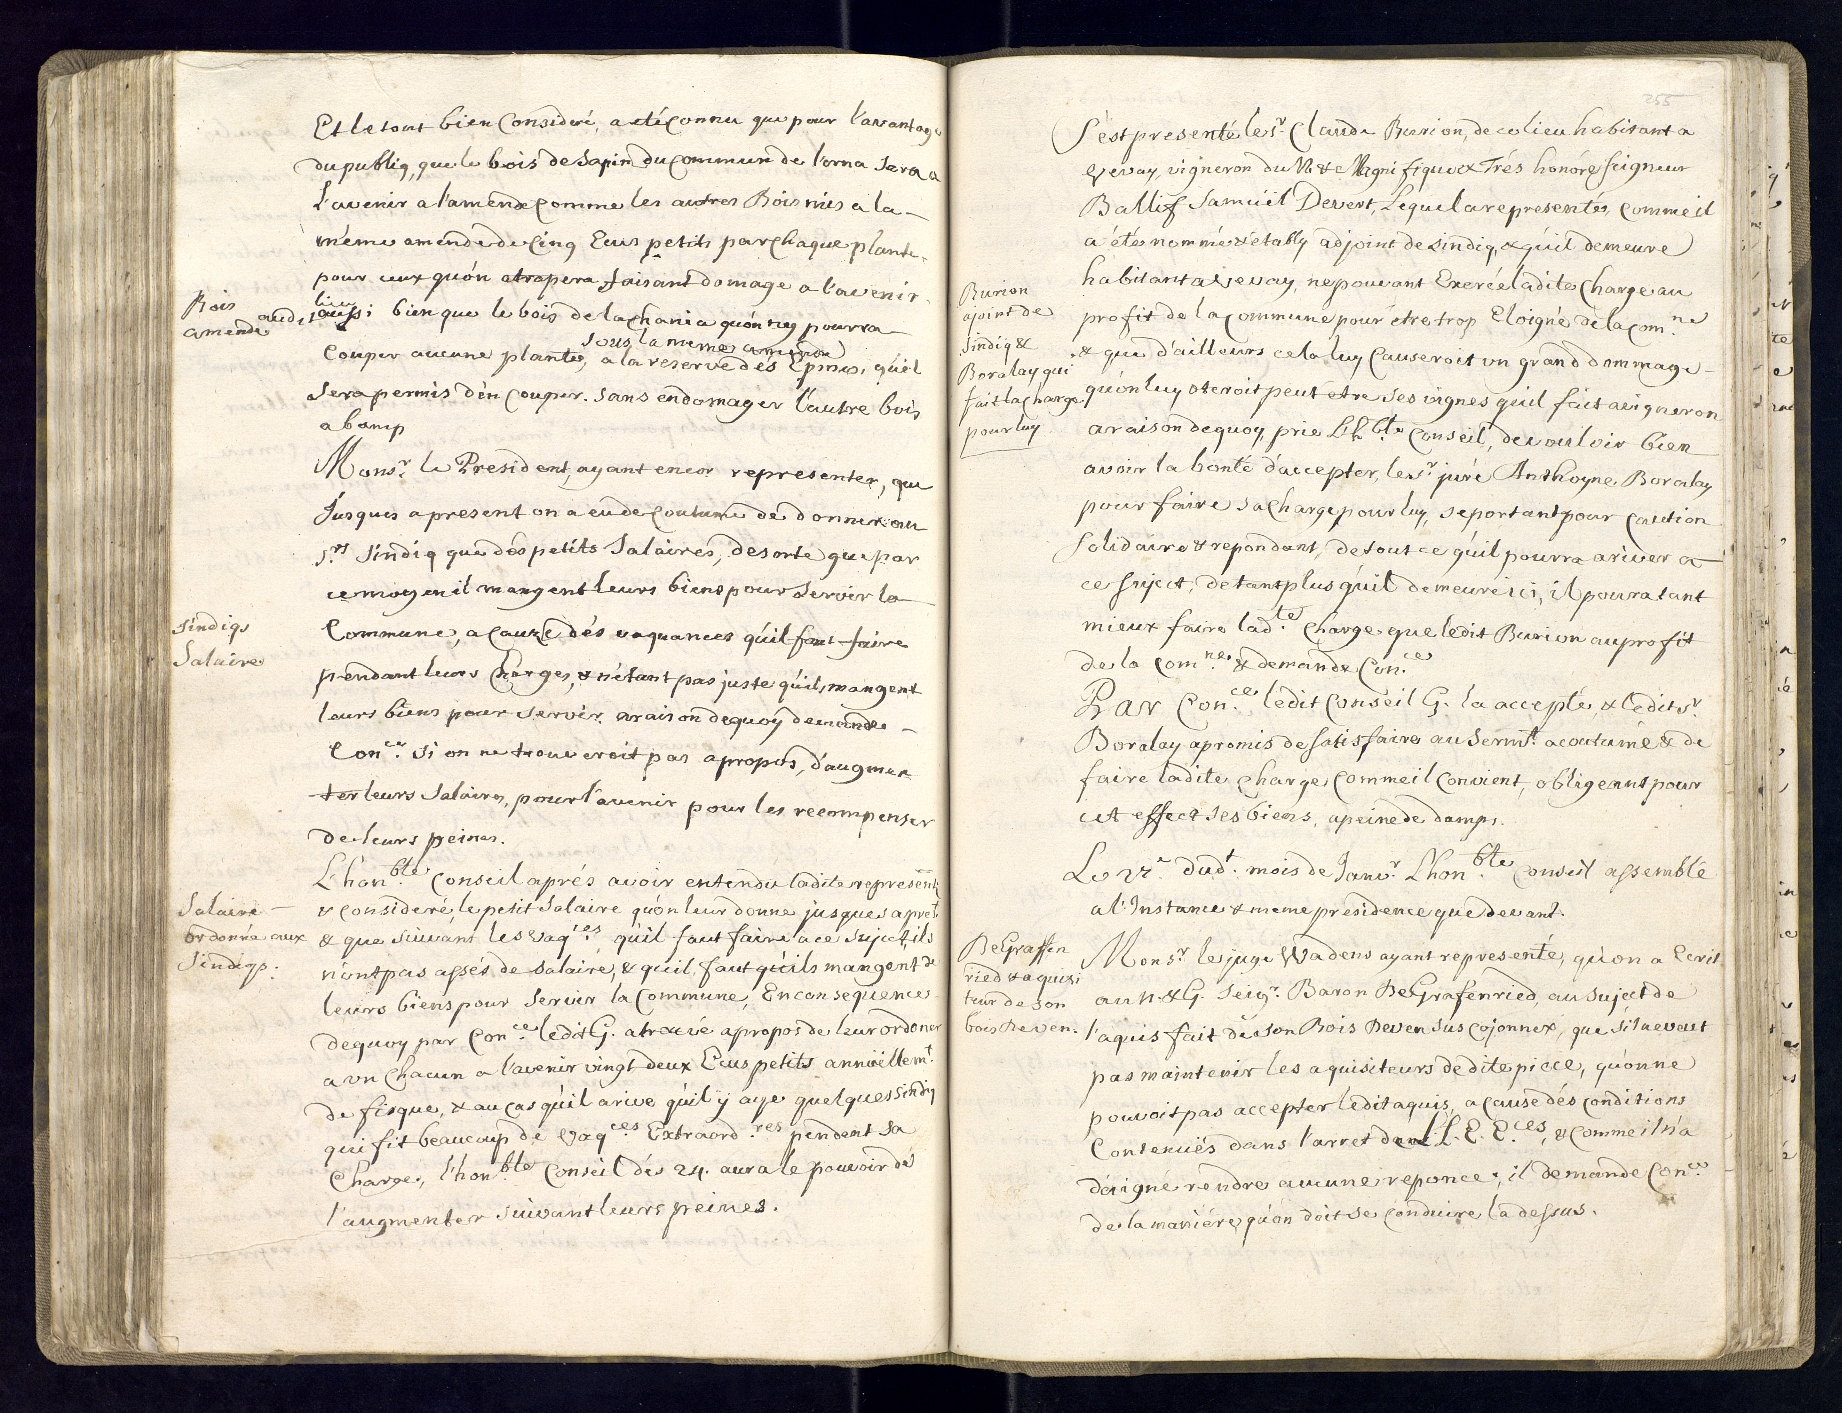 Et le tout bien Consideré, a été connu que pour l'avantage
du publiq, que le bois de Sapin du Commun de l'orna Sera a
L'avenir a l'amende comme les autres Bois mis a la
même amende de Cinq Ecus petits par Chaque plante
pour ceux qu'on atrapera faisant domage a l'avenir
Bois
amende
au dit lieu
aussi bien que le bois de la Chania qu'on n'y pourra
sous la meme amende
Couper aucune plante, a la reserve dés Epines, qu'il
Sera permis d'en Couper. Sans endomager l'autre bois
a bamp
Monsr. le President, ayant encor representer, que
Jusques a present on a eu de Coutume de donner au
Srs Sindiq que dés petits Salaires, desorte que par
ce moyen il mangent leurs biens pour Servir la
Sindiqs
Salaire
Commune, a Cauze dés vaquances qu'il faut faire
pendant leurs Charges, & n'étant pas juste qu'ils mangent
leurs biens pour Servir. a raison dequoy demande
Conce. Si on ne trouveroit pas apropos, d'augmen
ter leurs Salaires, pour l'avenir pour les recompenser
de leurs peines.
L'honble. Conseil aprés avoir entendu ladite represent
Salaire
ordonné aux
Sindiqs:
& consideré, le petit Salaire qu'on leur donne jusques a prest
& que Suivant les vaqces. qu'il faut faire a ce Sujet, ils
n'ont pas assés de Salaire, & qu'il faut qu'ils mangent de
leurs biens pour Servir la Commune, En consequence
dequoy par Conce ledit G. a trouvé apropos de leur ordoner
a un Chacun a l'avenir vingt deux Ecus petits annüellemt.
de fisque, & au cas qu'il arive qu'il y aye quelques Sindiq
qui fit beaucoup de Vaqces. Extraordres. pendent Sa
Charge, l'honble Conseil dés 24. aura le pouvoir de
l'augmenter Suivant leurs peines.
255
S'est presenté le Sr. Claude Burion, de ce lieu habitant a
Vevay, vigneron du N & Magnifique & Trés honoré Seigneur
Ballif Samüel Devert, Lequel a representés, comme il
a été nommé & étably adjoint de Sindiq, & qu'il demeure
habitant a Vevay, ne pouvant Exercé ladite Charge au
Burion
ajoint de
Sindiq &
Boralay qui
fait la charge
pour luy
profit de la commune pour étre trop Eloigné de la comne
& que d'ailleurs cela luy Causeroit un grand dommage
qu'on luy oteroit peut etre Ses vignes qu'il fait a vigneron
a raison dequoy, prie Lhble Conseil, de vouloir bien
avoir la bonté d'accepter, le Sr. juré Anthoyne Boralay
pour faire Sa Charge pour luy, Se portant pour Caution
Solidaire & repondant, de tout ce qu'il pourra ariver a
ce Sujet, de tant plus qu'il demeure ici, il poura tant
mieux faire ladte. Charge, que ledit Burion au profit
de la comne. & demande Conce
Par Conce. ledit Conseil G. la accepté, & ledit Sr.
Boralay a promis de Satisfaire au Sermt. acoutumé & de
faire ladite Charge, Comme il convient, obligeant pour
cet effect Ses biens, a peine de damps.
Le 22e dudt. mois de Janvr. L'honble Conseil assemblé
a l'Instance & meme presidence que devant.
De Graffen
ried & aquisi
teur de Son
bois Deven.
Monsr. le juge Wadens ayant representé, qu'on a Ecrit
au N. & G. Seigr. Baron De Grafenried, au Sujet de
l'aquis fait de Son Bois Deven Sus Cojonnex, que S'il ne veut
pas maintenir les aquisiteurs de dite piece, qu'on ne
pouvoit pas accepter ledit aquis, a cause dés conditions
Contenués dans l'arret de LL. E. Eces, & comme il n'a
daigné rendre aucune reponce, il demande Conce
de la maniére, qu'on doit Se Conduire la dessus.